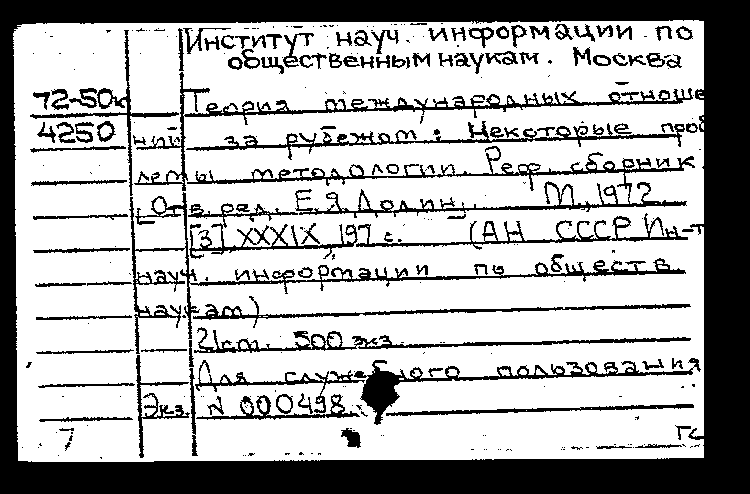 Институт науч. информации по
общественным наукам. Москва
72-50к
Теория международных отноше
4250 ний за рубежом: Некоторые проб
лемы методологии. Реф. сборник.
[Отв. ред. Е.Я. Додин]. М., 1972.
[3], XXXIX, 197 с. (АН СССР Ин-т
науч. информации по обществ.
наукам)
21 cm. 500 экз.
Для служебного пользования
Экз. N 000498.
7 ГС